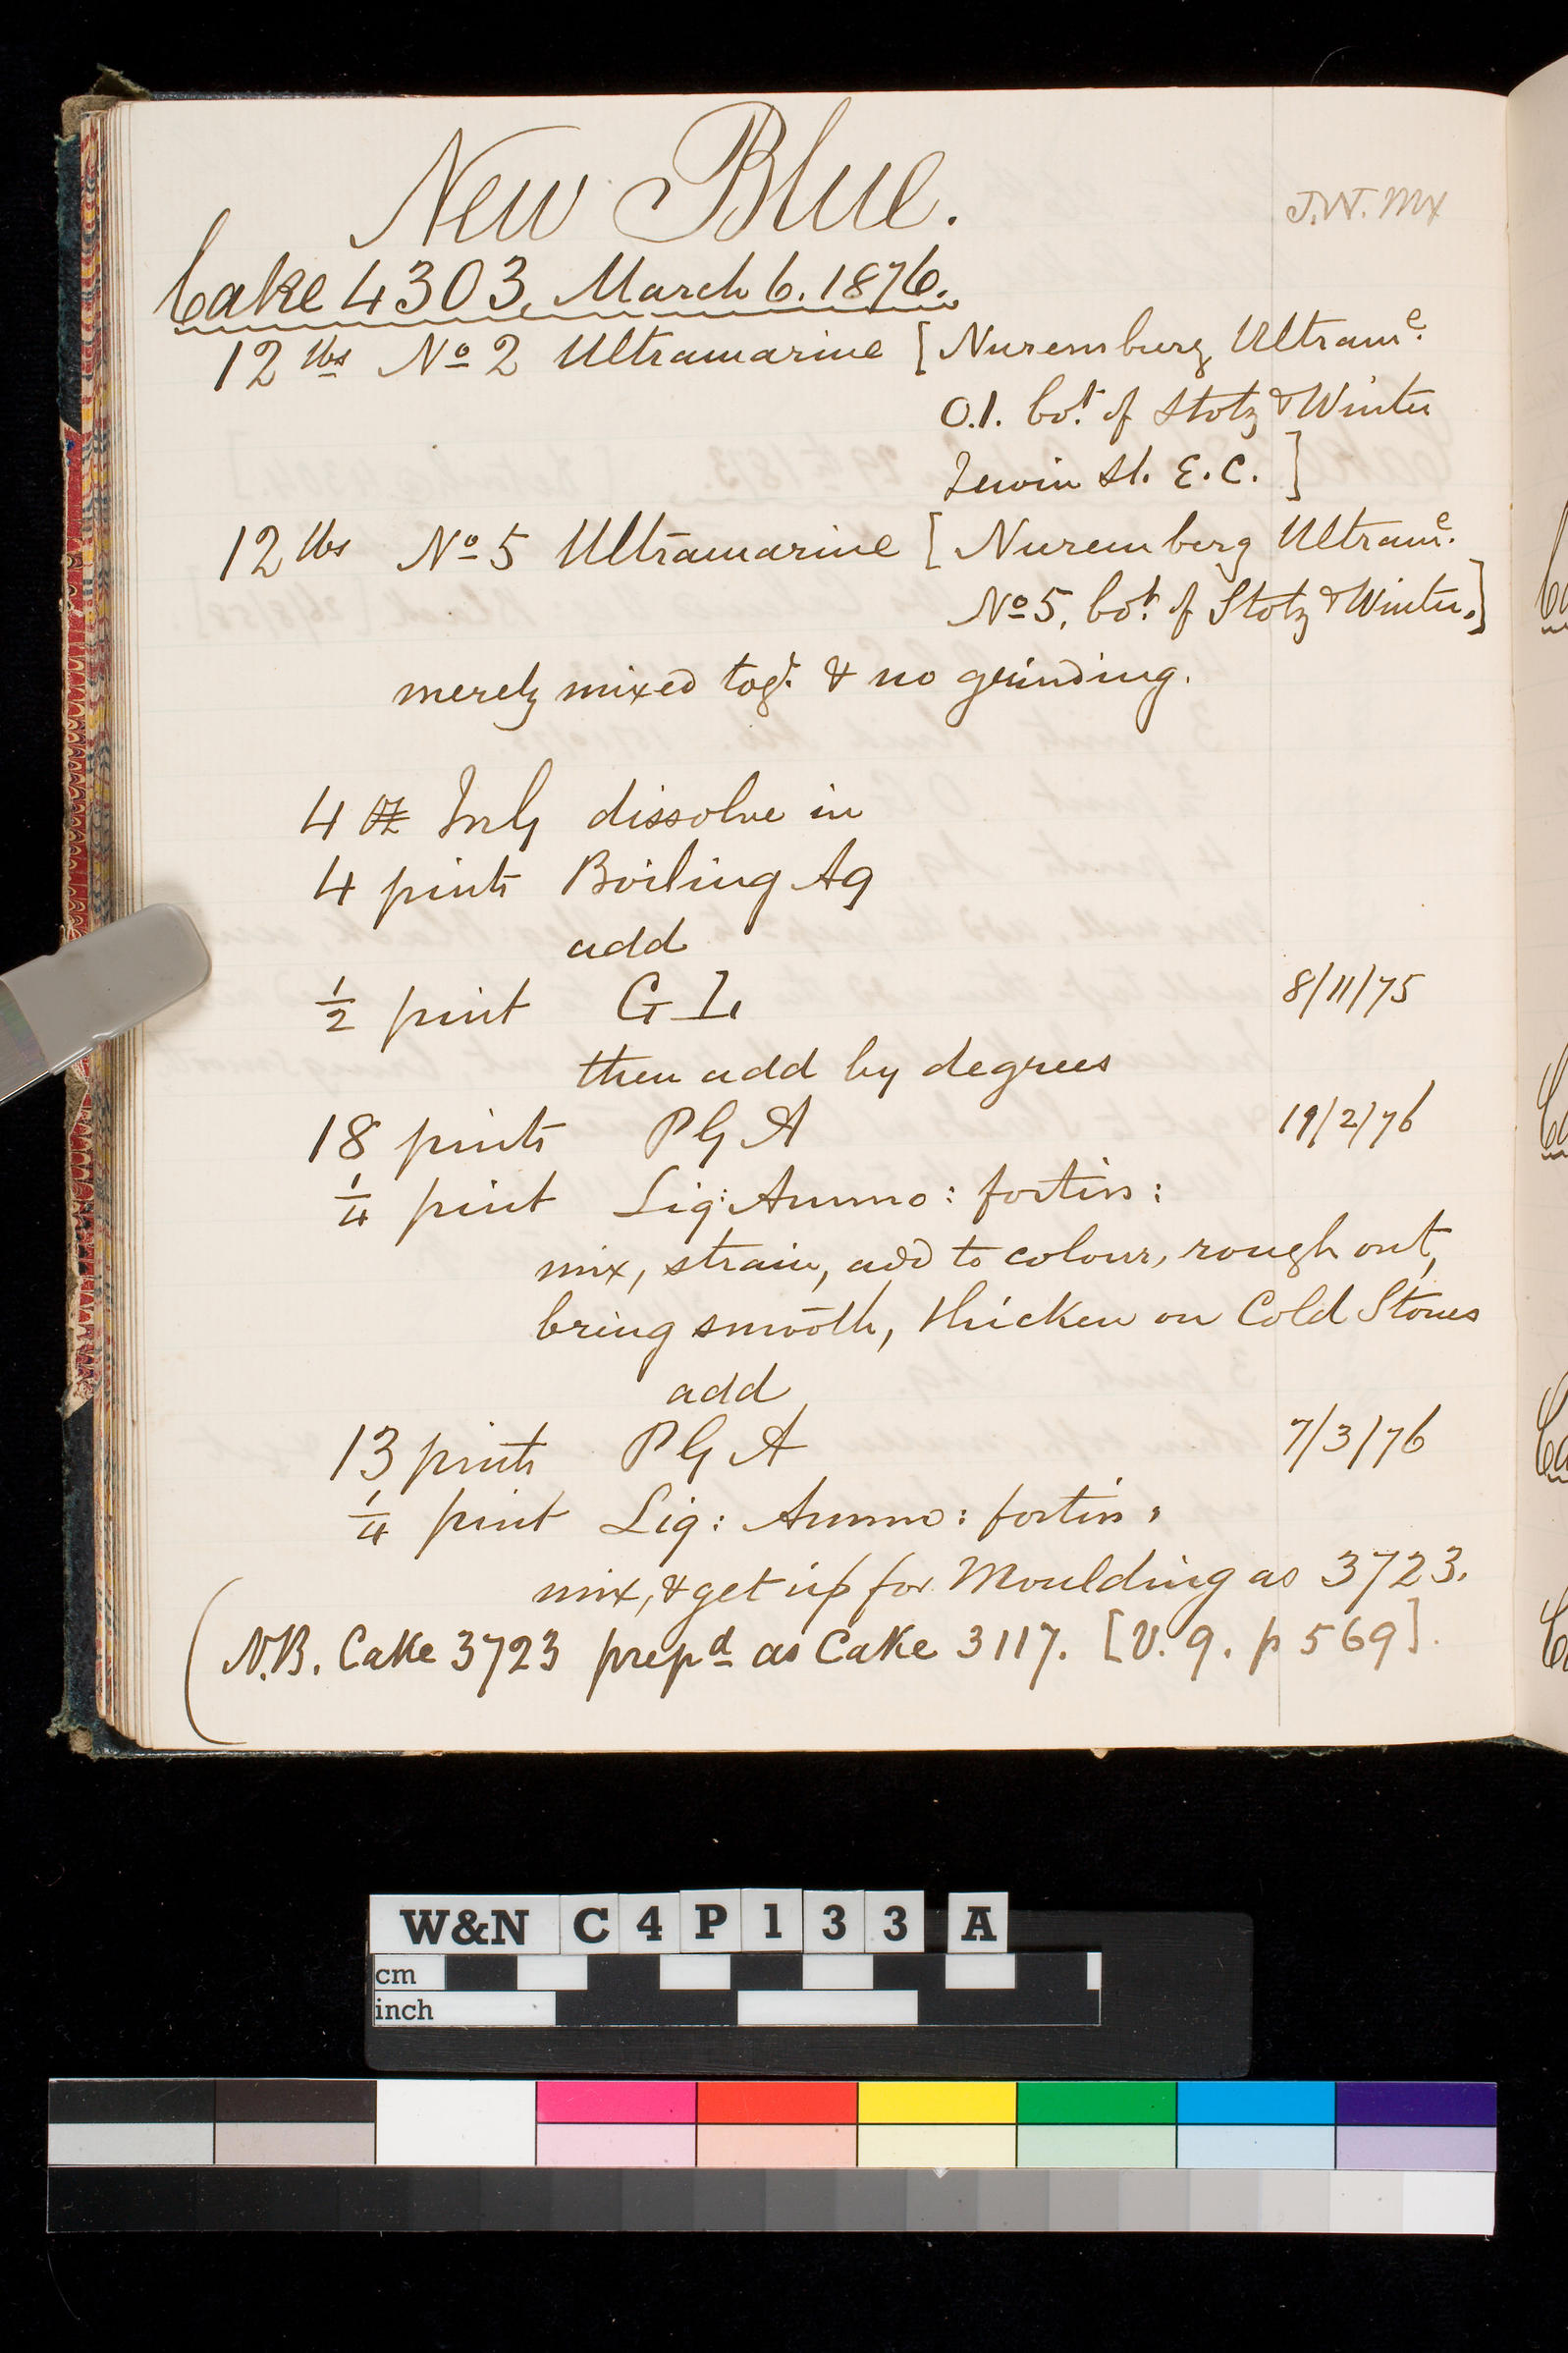 New Blue.
J.W. Mx
Cake 4303. March 6. 1876.
12 lbs No 2 Ultramarine [Nuremburg Ultrame.
0.1. bot. of Stotz & Winter
Jewin St. E.C.]
12 lbs No 5 Ultramarine [Nuremberg Ultrame.
No 5, bot. of Stotz & Winter.]
merely mixed togr. & no grinding.
4 oz dissolve in
4 pints Boiling Aq
add
1/2 pint G I. 8/11/75
then add by degrees
18 pints P G A 19/2/76
1/4 pint Liq: Ammo: fortiss:
mix, strain, add to colour, rough out,
bring smooth, thicken on Cold Stones
add
13 pints P G A 7/3/76
1/4 pint Liq: Ammo: fortiss:
mix, & get up for Moulding as 3723.
(N.B. Cake 3723 prepd as Cake 3117. [V. 9. p 569].
W&N C4P133 A
cm
inch